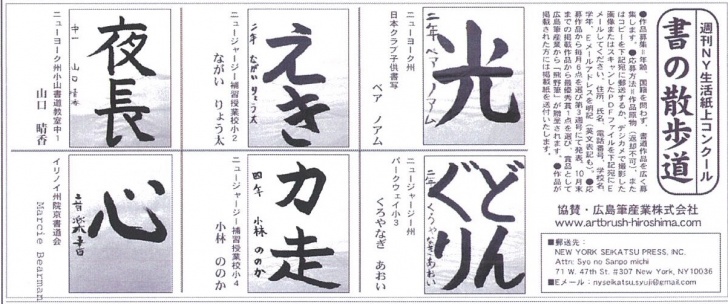 週刊NY生活紙上コンクール
書の散歩道
●作品募集=年齢、国籍を問わず、書道作品を広く募
集します。●応募方法=作品原物（返却不可）、また
はコピーを下記宛に郵送するか、デジカメで撮影した
画像またはスキャンしたPDFファイルを下記宛にE
メールしてください。住所、氏名、電話番号、学校名、
学年、Eメールアドレスを明記（英文表記も）。●応
募作品から毎月6点を選び第3週号にて発表。10月末
までの掲載作品から最優秀賞1点を選び、賞品として
広島筆産業から「熊野筆」が贈呈されます。●作品が
掲載された方には掲載紙を送付いたします。
協賛・広島筆産業株式会社
www.artbrush-hiroshima.com
■郵送先：
NEW YORK SEIKATSU PRESS, INC.
Attn: Syo no Sanpo michi
71 W. 47th St. #307 New York, NY10036
■Eメール：nyseikatsu.syuji@gmail.com
光
二年 ベア ノアム
ニューヨーク州
日本クラブ子供書写
ベア ノアム
えき
二年 ながい りょう太
ニュージャージー補習授業校小2
ながい りょう太
夜長
中一 山口 晴香
ニューヨーク州小山書道教室中1
山口 晴香
どん
ぐり
三年 くろやなぎ あおい
ニュージャージー州
パークウェイ小3
くろやなぎ あおい
力走
四年 小林 ののか
ニュージャージー補習授業校小4
小林 ののか
心
イリノイ州院京書道会
Marcie Bearman